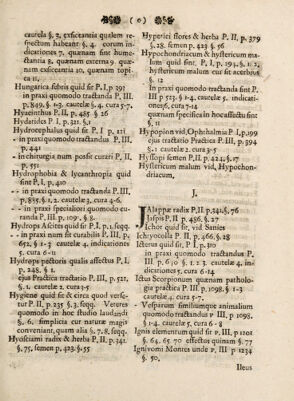 (o)
cautela §. 2, exsiccantia qualem re-
spectum habeant §. 4. eorum in-
dicationes 7, quænam sint hume-
ctantia 8, quænam externa 9, quæ-
nam exsiccantia 10, quænam topi-
ca 11,
Hungarica febris quid sit P, I, p. 391
- in praxi quomodo tractanda P. III.
p. 849, §. 1-3, cautelæ §. 4, cura 5-7.
Hyacinthus P. II, p. 485 §. 26
Hydatides P. I, p. 241 §. 1
Hydrocephalus quid sit P. I p, 121
- in praxi quomodo tractandus P. III,
p. 441
- in chirurgia num possit curari P, II,
p. 551
Hydrophobia & lycanthropia quid
sint P, I, p, 410
- - in praxi quomodo tractanda P. III,
p, 835, §. 1, 2, cautelæ 3, cura 4-6.
- - in praxi speciatiori quomodo cu-
randa P, III, p, 109. §. 8.
Hydrops Ascites quid sit P. I, p. 1, seqq.
- - in praxi num sit curabilis P, III, p.
652, § 1-3 cautelæ 4. indicationes
5. cura 6-11
Hydrops pectoris qualis affectus P, I,
p. 248, §. 1,
ejus Practica tractatio P, III, p. 521,
§. 1. cautelæ 2. cura 3-5
Hygiene quid sit & circa quod verse-
tur P. II, p. 235 §. 3, seqq. Veteres
quomodo in hoc studio laudandi
§, 6. simplicia cur naturæ magis
conveniant, quam alia §, 7. 8, seqq.
Hyosciami radix & herba P, II, p. 342
§, 75, semen p, 423, §. 55
Hyperici flores & herba P, II, p. 379
§. 28, semen p, 423 § 56
Hypochondriacum & hystericum ma-
lum quid sint P, I, p, 294, §. 1. 2,
hystericum malum cur sit acerbius
§. 12
in praxi quomodo tractanda sint P.
III p 513. § 1-4, cautelæ 5. indicati-
ones 6, cura 7-14
quænam specifica in hoc affectu sint
§. 11
Hypopion vid. Ophthalmia P. I, p. 199
ejus tractatio Practica P. III, p. 394
§. 1. cautelæ 2. cura 3-5
Hyssopi semen P, II, p. 424, §. 17
Hystericum malum vid, Hypochon-
driacum,
J.
JAlappæ radix P, II, p. 341, §, 76
Jaspis P, II, p. 486, §. 27
Ichor quid sit, vid, Sanies
Ichtyocolla P. II, p, 466, §. 28
Icterus quid sit P, I, p. 310
- in praxi quomodo tractandus P,
III. p, 610, §. 1. 2. 3. cautelæ 4, in-
dicationes 5, cura 6-14
Ictus Scorpionum quænam patholo-
gia practica P, III, p. 1098. §. 1-3
cautelæ 4, cura 5-7.
- Vesparum similiumque animalium
quomodo tractandus P III, p. 1098,
§. 1-4. cautelæ 5. cura 6-8
Ignis elementum quid sit P, III p 1201
§. 64. 65 70 effectus quinam §. 77
Ignivomi Montes unde P, III p 1234
§. 50,
Ileus